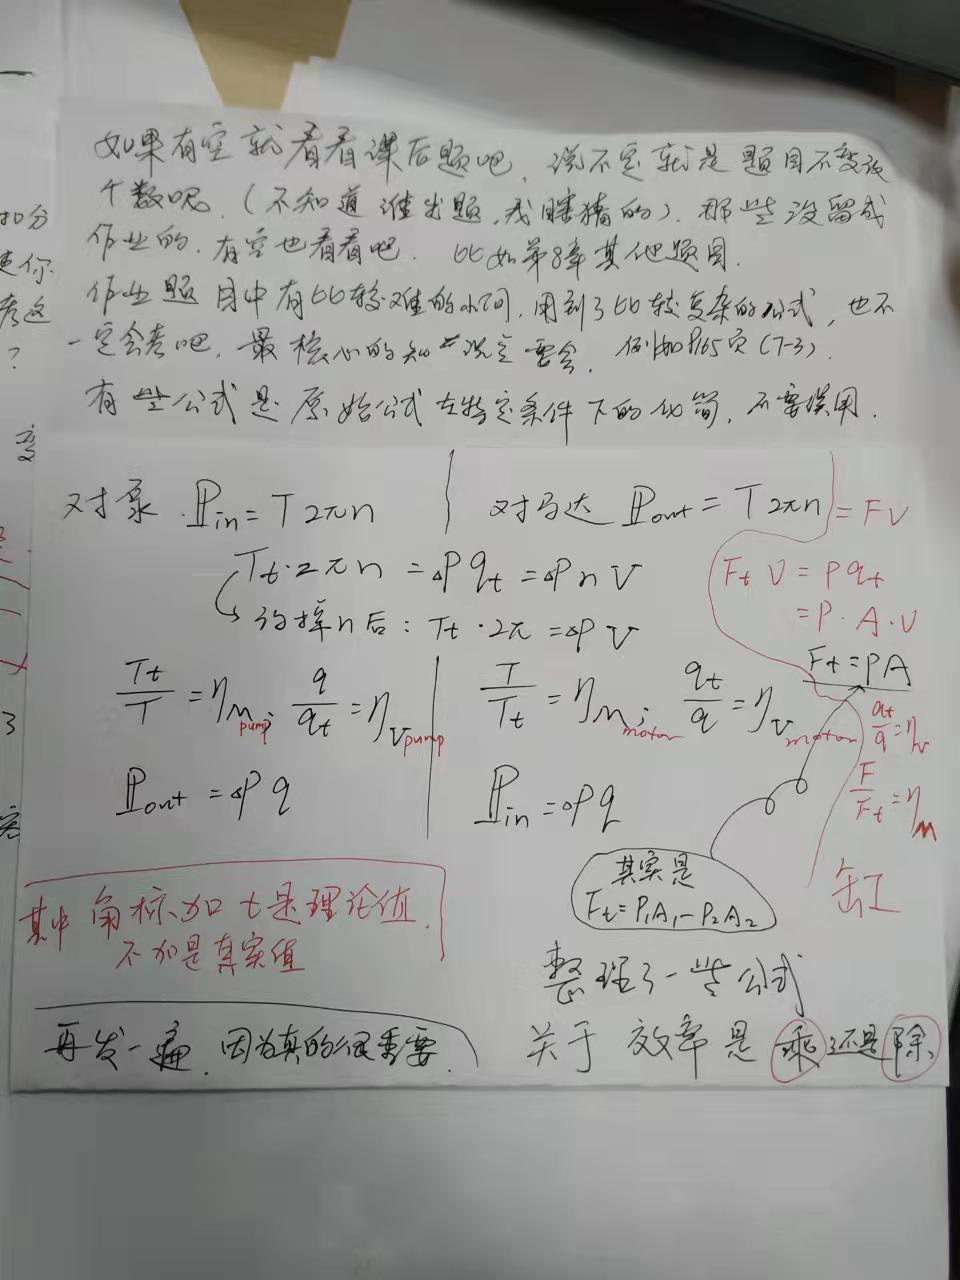 如果有空就看看课后题吧，说不定就是题目不变改
个数呢.（不知道谁出题，我瞎猜的）. 那些没留成
作业的. 有空也看看吧. 比如第8章其他题目.
作业题目中有比较难的小问，用到了比较复杂的公式，也不
一定会考吧，最核心的知识一定要会. 例如P165页(7-3).
有些公式是原始公式在特定条件下的化简，不要误用.
扣分
你
这
?
3
对泵 Pin = T2πn
对马达 Pout = T2πn = FV
Tt·2πn = ΔPqt = ΔPnV
Ft V = Pqt
= P·A·V
约掉n后: Tt·2π = ΔPV
Ft = PA
Tt/T = ηm pump; q/qt = ηv pump
T/Tt = ηm motor; qt/q = ηv motor
qt/q = ηv
F/Ft = ηM
缸
Pout = ΔPq
Pin = ΔPq
其实是
Ft = P1A1-P2A2
其中角标加t是理论值.
不加是真实值
整理了一些公式
再发一遍. 因为真的很重要.
关于效率是乘还是除